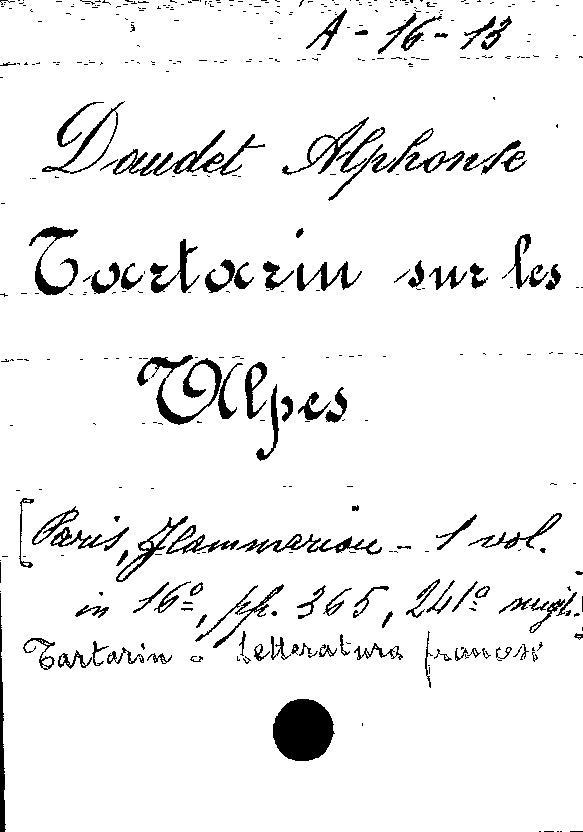 A - 16 - 13
Daudet Alphonse
Tartarin sur les
Alpes
[Paris, Flammarion - 1 vol.
in 16º, pp. 365, 241º migl.]
Tartarin - Letteratura francese